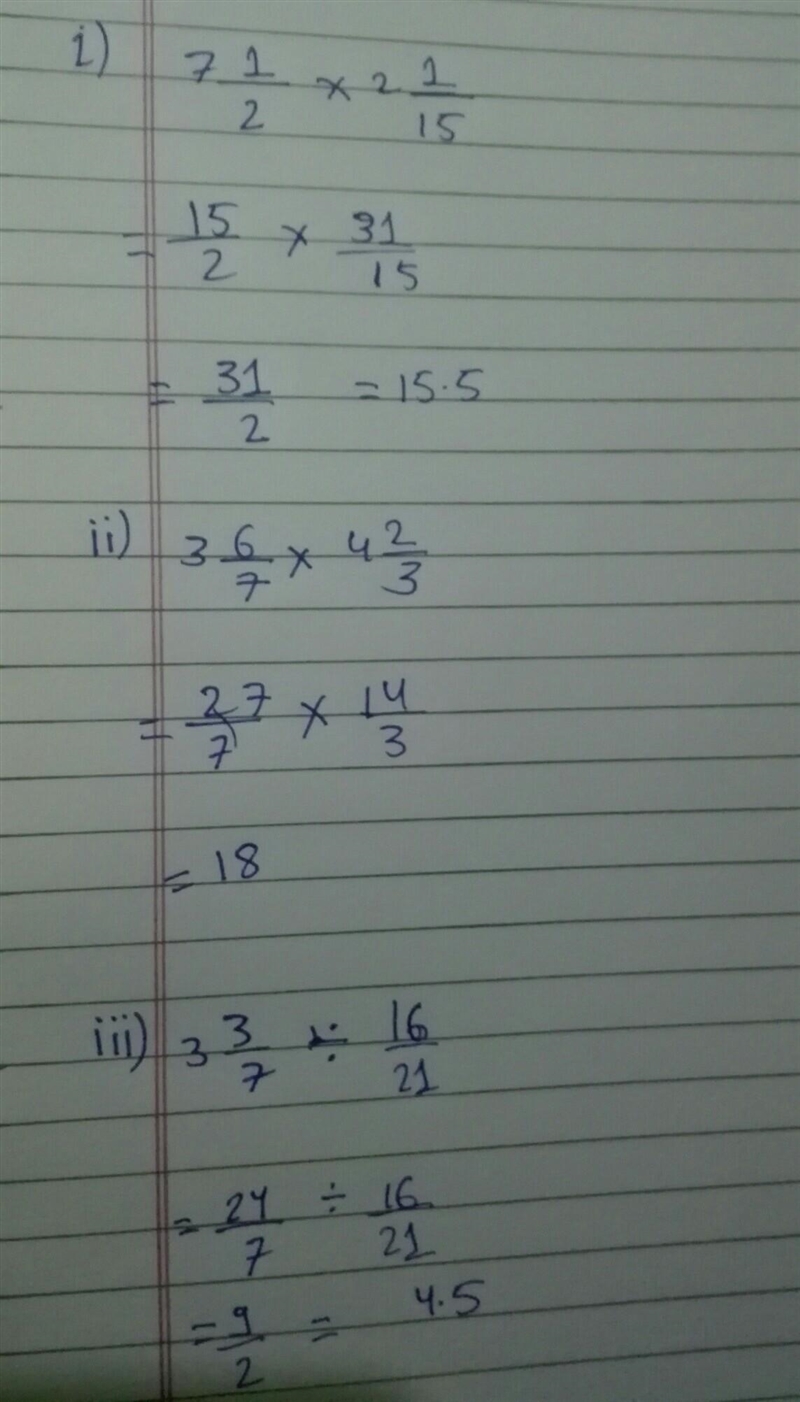 i) 7 1/2 × 2 1/15
= 15/2 × 31/15
= 31/2 = 15.5
ii) 3 6/7 × 4 2/3
= 27/7 × 14/3
= 18
iii) 3 3/7 ÷ 16/21
= 24/7 ÷ 16/21
= 9/2 = 4.5